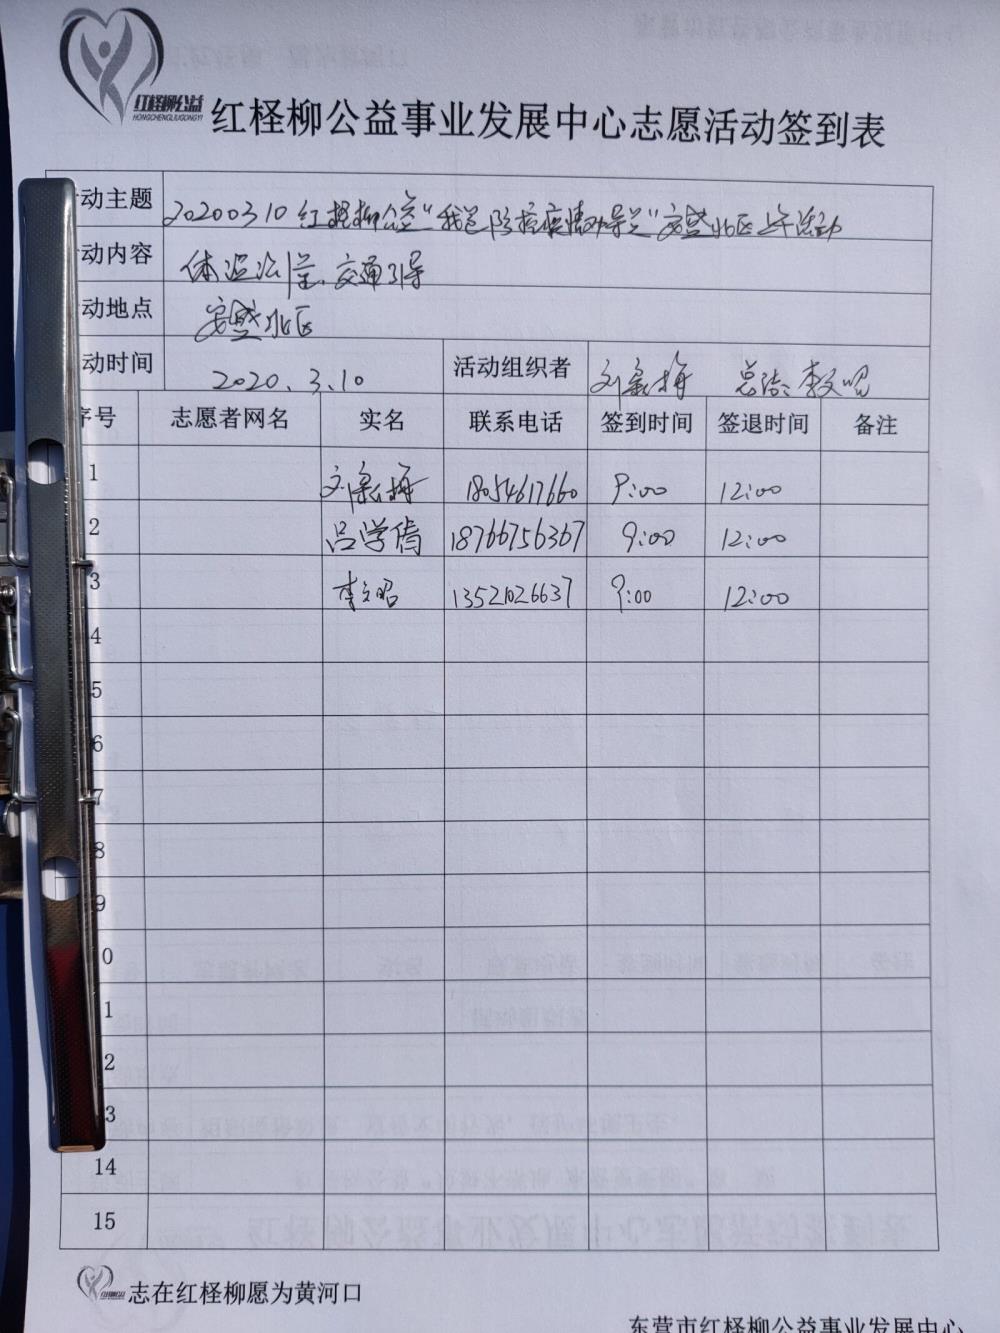 红柽柳公益
HONGCHENGLIUGONGYI
红柽柳公益事业发展中心志愿活动签到表
动主题 20200310 红柽柳公益“我是防控疫情劝导员”安盛北区上午活动
动内容 体温测量、交通引导
动地点 安盛北区
动时间 2020.3.10 活动组织者 刘 梅 总结:李文昭
序号 志愿者网名 实名 联系电话 签到时间 签退时间 备注
1 刘 梅 18054617660 9:00 12:00
2 吕学倩 18766756367 9:00 12:00
3 李文昭 13521026637 9:00 12:00
4
5
6
7
8
9
0
1
2
3
14
15
志在红柽柳愿为黄河口
东营市红柽柳公益事业发展中心